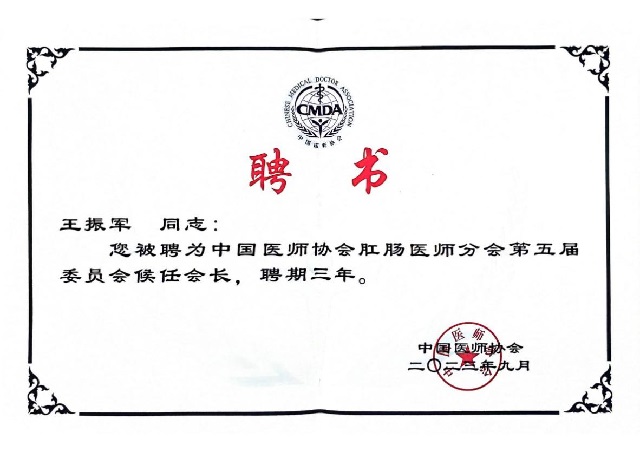 CHINESE MEDICAL DOCTOR ASSOCIATION
CMDA
中国医师协会
聘 书
王振军 同志：
您被聘为中国医师协会肛肠医师分会第五届
委员会候任会长，聘期三年。
中国医师协会
二〇二三年九月